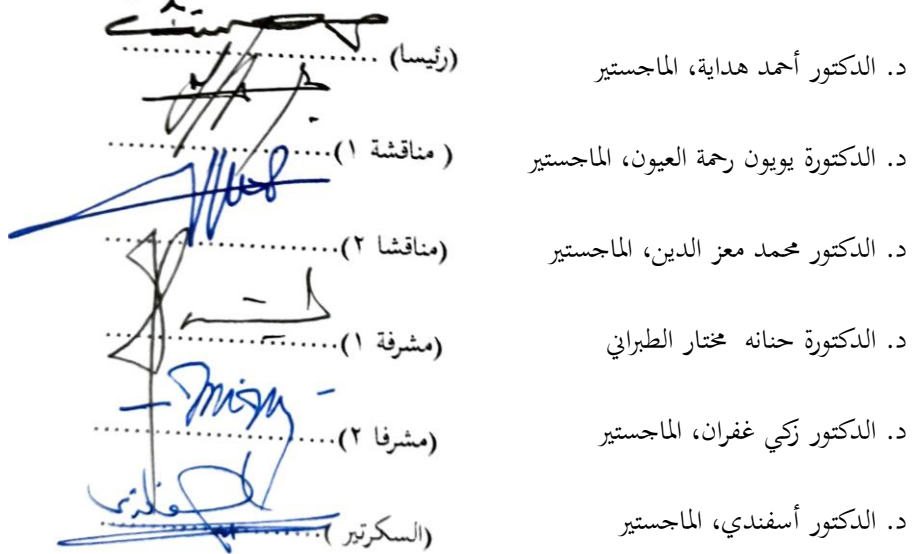 د. الدكتور أحمد هداية، الماجستير (رئيسا) ..................
د. الدكتورة يويون رحمة العيون، الماجستير ( مناقشة ١)..................
د. الدكتور محمد معز الدين، الماجستير (مناقشا ٢)..................
د. الدكتورة حنانه مختار الطبراني (مشرفة ١)..................
د. الدكتور زكي غفران، الماجستير (مشرفا ٢)..................
د. الدكتور أسفندي، الماجستير (السكرتير )..................